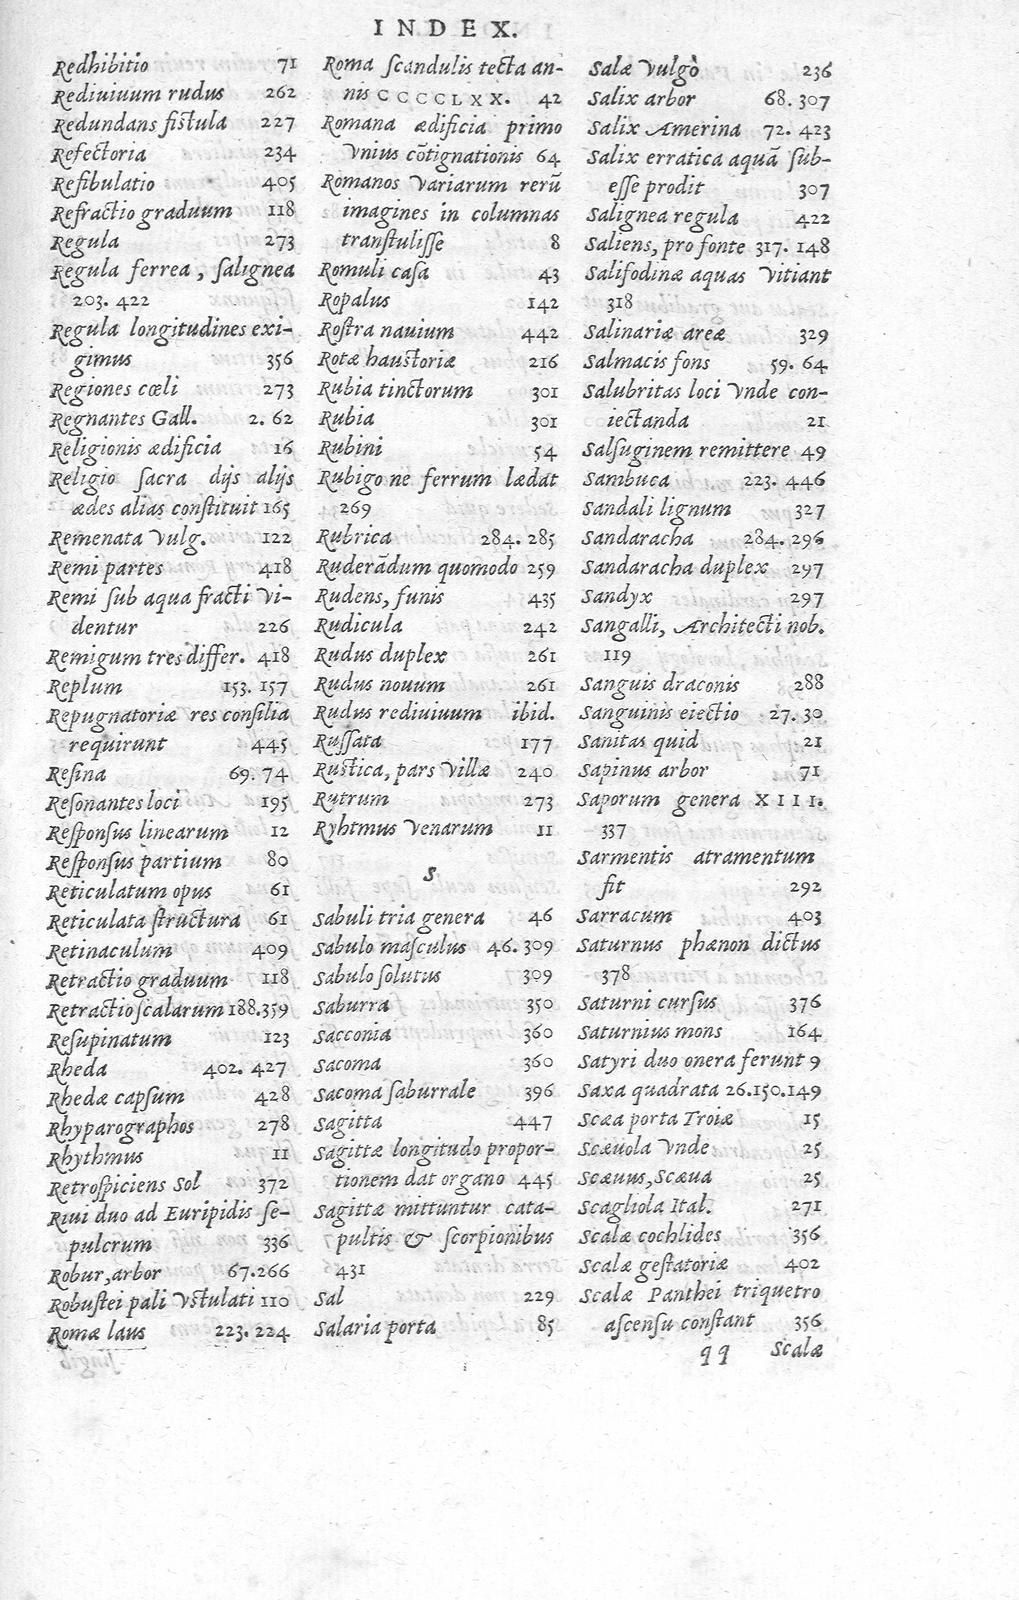 INDEX.
Redhibitio 71
Rediuiuum rudus 262
Redundans fistula 227
Refectoria 234
Refibulatio 405
Refractio graduum 118
Regula 273
Regula ferrea, salignea
203. 422
Regula longitudines exi-
gimus 356
Regiones cœli 273
Regnantes Gall. 2. 62
Religionis ædificia 16
Religio sacra dijs alijs
ædes alias constituit 165
Remenata vulg. 122
Remi partes 418
Remi sub aqua fracti vi-
dentur 226
Remigum tres differ. 418
Replum 153. 157
Repugnatoriæ res consilia
requirunt 445
Resina 69. 74
Resonantes loci 195
Responsus linearum 12
Responsus partium 80
Reticulatum opus 61
Reticulata structura 61
Retinaculum 409
Retractio graduum 118
Retractio scalarum 188.359
Resupinatum 123
Rheda 402. 427
Rhedæ capsum 428
Rhyparographos 278
Rhythmus 11
Retrospiciens Sol 372
Riui duo ad Euripidis se-
pulcrum 336
Robur, arbor 67.266
Robustei pali vstulati 110
Romæ laus 223. 224
Roma scandulis tecta an-
nis CCCCLXX. 42
Romana ædificia primo
vnius cõtignationis 64
Romanos variarum rerũ
imagines in columnas
transtulisse 8
Romuli casa 43
Ropalus 142
Rostra nauium 442
Rotæ haustoriæ 216
Rubia tinctorum 301
Rubia 301
Rubini 54
Rubigo ne ferrum lædat
269
Rubrica 284. 285
Ruderãdum quomodo 259
Rudens, funis 435
Rudicula 242
Rudus duplex 261
Rudus nouum 261
Rudus rediuiuum ibid.
Russata 177
Rustica, pars villæ 240
Rutrum 273
Ryhtmus venarum 11
S
Sabuli tria genera 46
Sabulo masculus 46. 309
Sabulo solutus 309
Saburra 350
Sacconia 360
Sacoma 360
Sacoma saburrale 396
Sagitta 447
Sagittæ longitudo propor-
tionem dat organo 445
Sagittæ mittuntur cata-
pultis & scorpionibus
431
Sal 229
Salaria porta 85
Salæ vulgò 236
Salix arbor 68. 307
Salix Amerina 72. 423
Salix erratica aquã sub-
esse prodit 307
Salignea regula 422
Saliens, pro fonte 317. 148
Salifodinæ aquas vitiant
318
Salinariæ areæ 329
Salmacis fons 59. 64
Salubritas loci vnde con-
iectanda 21
Salsuginem remittere 49
Sambuca 223. 446
Sandali lignum 327
Sandaracha 284. 296
Sandaracha duplex 297
Sandyx 297
Sangalli, Architecti nob.
119
Sanguis draconis 288
Sanguinis eiectio 27. 30
Sanitas quid 21
Sapinus arbor 71
Saporum genera XIII.
337
Sarmentis atramentum
fit 292
Sarracum 403
Saturnus phænon dictus
378
Saturni cursus 376
Saturnius mons 164
Satyri duo onera ferunt 9
Saxa quadrata 26.150.149
Scæa porta Troiæ 15
Scæuola vnde 25
Scæuus, Scæua 25
Scagliola Ital. 271
Scalæ cochlides 356
Scalæ gestatoriæ 402
Scalæ Panthei triquetro
ascensu constant 356
qq Scalæ